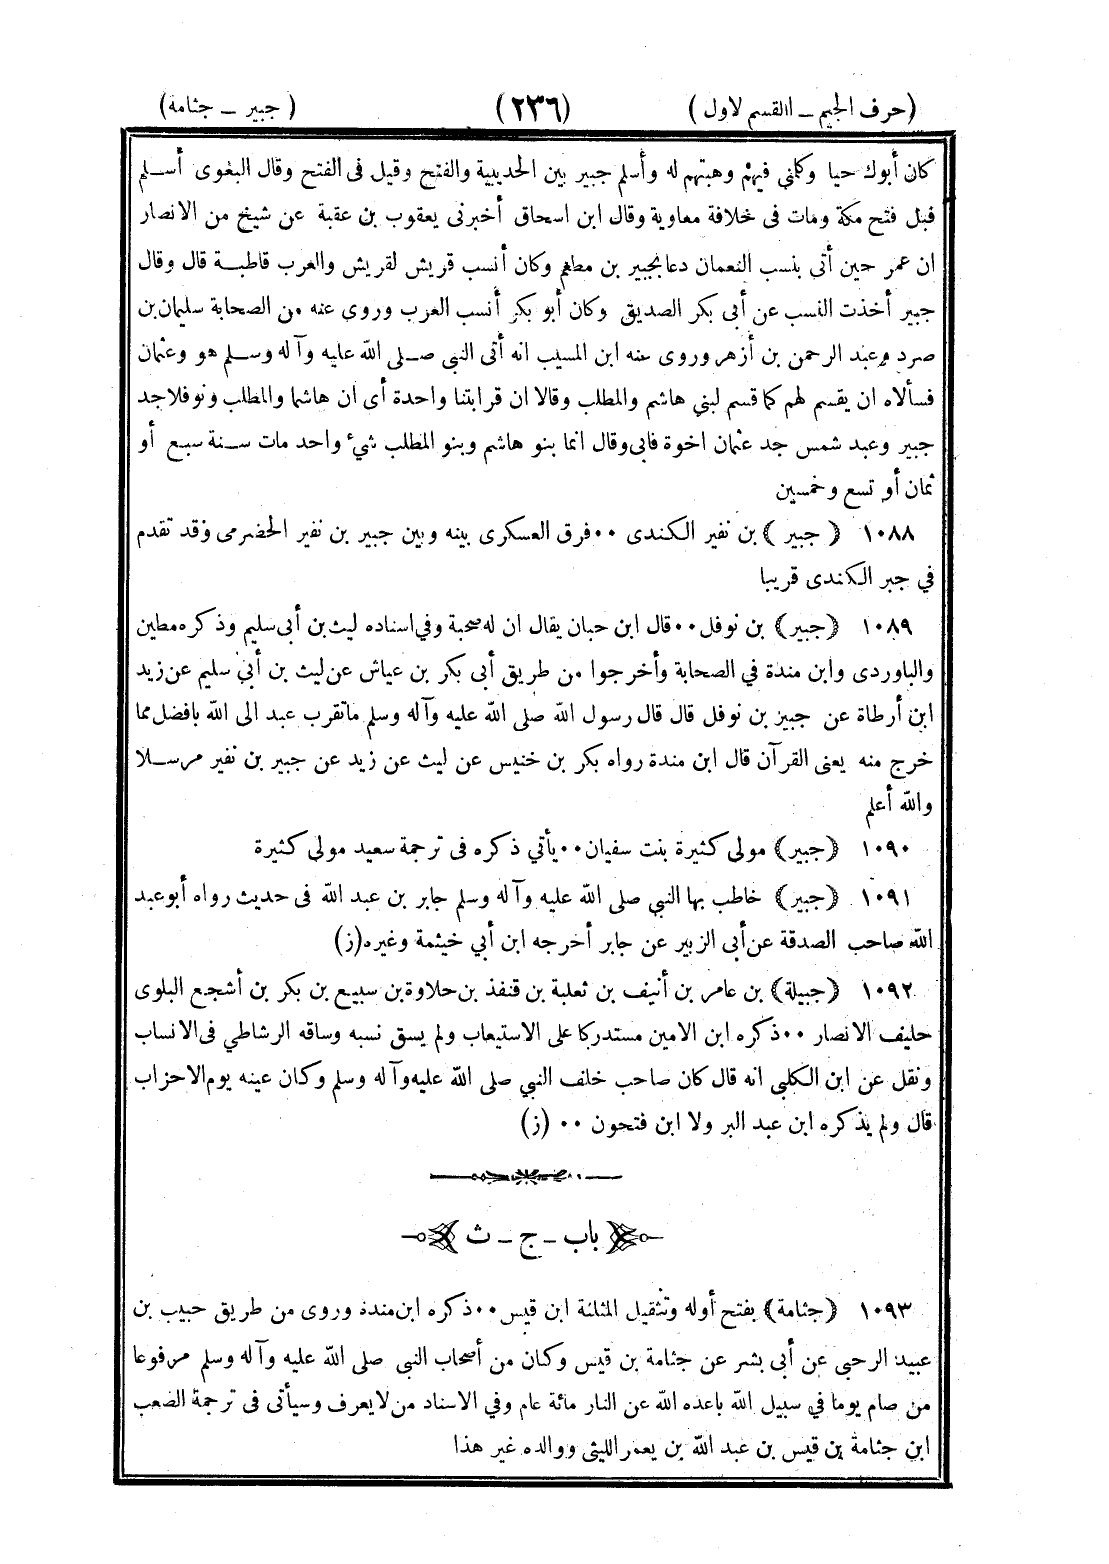 (حرف الجيم ــ االقسم لاول)
(٢٣٦)
(جبير ــ جثامة)
كان أبوك حيا وكلمني فيهم وهبتهم له وأسلم جبير بين الحديبية والفتح وقيل فى الفتح وقال البغوى أســلم
قبل فتح مكة ومات فى خلافة معاوية وقال ابن اسحاق أخبرنى يعقوب بن عقبة عن شيخ من الانصار
ان عمر حين أتى بنسب النعمان دعا بجبير بن مطعم وكان أنسب قريش لقريش والعرب قاطبــة قال وقال
جبير أخذت النسب عن أبى بكر الصديق وكان أبو بكر أنسب العرب وروى عنه من الصحابة سليمان بن
صرد وعبد الرحمن بن أزهر وروى عنه ابن المسيب انه أتى النبي صــلى الله عليه وآ له وســلم هو وعثمان
فسألاه ان يقسم لهم كما قسم لبني هاشم والمطلب وقالا ان قرابتنا واحدة أى ان هاشما والمطلب ونوفلا جد
جبير وعبد شمس جد عثمان اخوة فابى وقال انما بنو هاشم وبنو المطلب شيء واحد مات ســنة سبع أو
ثمان أو تسع وخمسين
١٠٨٨ (جبير) بن نفير الكندى ٠٠فرق العسكرى بينه وبين جبير بن نفير الحضرمى وقد تقدم
في جبر الكندى قريبا
١٠٨٩ (جبير) بن نوفل٠٠قال ابن حبان يقال ان له صحبة وفي اسناده ليث بن أبى سليم وذكره مطين
والباوردى وابن مندة في الصحابة وأخرجوا من طريق أبى بكر بن عياش عن ليث بن أبي سليم عن زيد
ابن أرطاة عن جبير بن نوفل قال قال رسول الله صلى الله عليه وآله وسلم ماتقرب عبد الى الله بافضل مما
خرج منه يعنى القرآن قال ابن مندة رواه بكر بن خنيس عن ليث عن زيد عن جبير بن نفير مرســلا
والله أعلم
١٠٩٠ (جبير) مولى كثيرة بنت سفيان٠٠يأتي ذكره فى ترجمة سعيد مولى كثيرة
١٠٩١ (جبير) خاطب بها النبي صلى الله عليه وآ له وسلم جابر بن عبد الله فى حديث رواه أبوعبد
الله صاحب الصدقة عن أبى الزبير عن جابر أخرجه ابن أبي خيثمة وغيره(ز)
١٠٩٢ (جبيلة) بن عامر بن أنيف بن ثعلبة بن قنفذ بن حلاوة بن سبيع بن بكر بن أشجع البلوى
حليف الانصار ٠٠ذكره ابن الامين مستدركا على الاستيعاب ولم يسق نسبه وساقه الرشاطي فى الانساب
ونقل عن ابن الكلبى انه قال كان صاحب خلف النبي صلى الله عليه وآ له وسلم وكان عينه يوم الاحزاب
قال ولم يذكره ابن عبد البر ولا ابن فتحون ٠٠ (ز)
باب ـ ج ـ ث
١٠٩٣ (جثامة) بفتح أوله وتثقيل المثلثة ابن قيس٠٠ذكره ابن مندة وروى من طريق حبيب بن
عبيد الرحبى عن أبى بشر عن جثامة بن قيس وكان من أصحاب النبى صلى الله عليه وآ له وسلم مرفوعا
من صام يوما في سبيل الله باعده الله عن النار مائة عام وفي الاسناد من لا يعرف وسيأتى فى ترجمة الصعب
ابن جثامة بن قيس بن عبد الله بن يعمر الليثى ووالده غير هذا